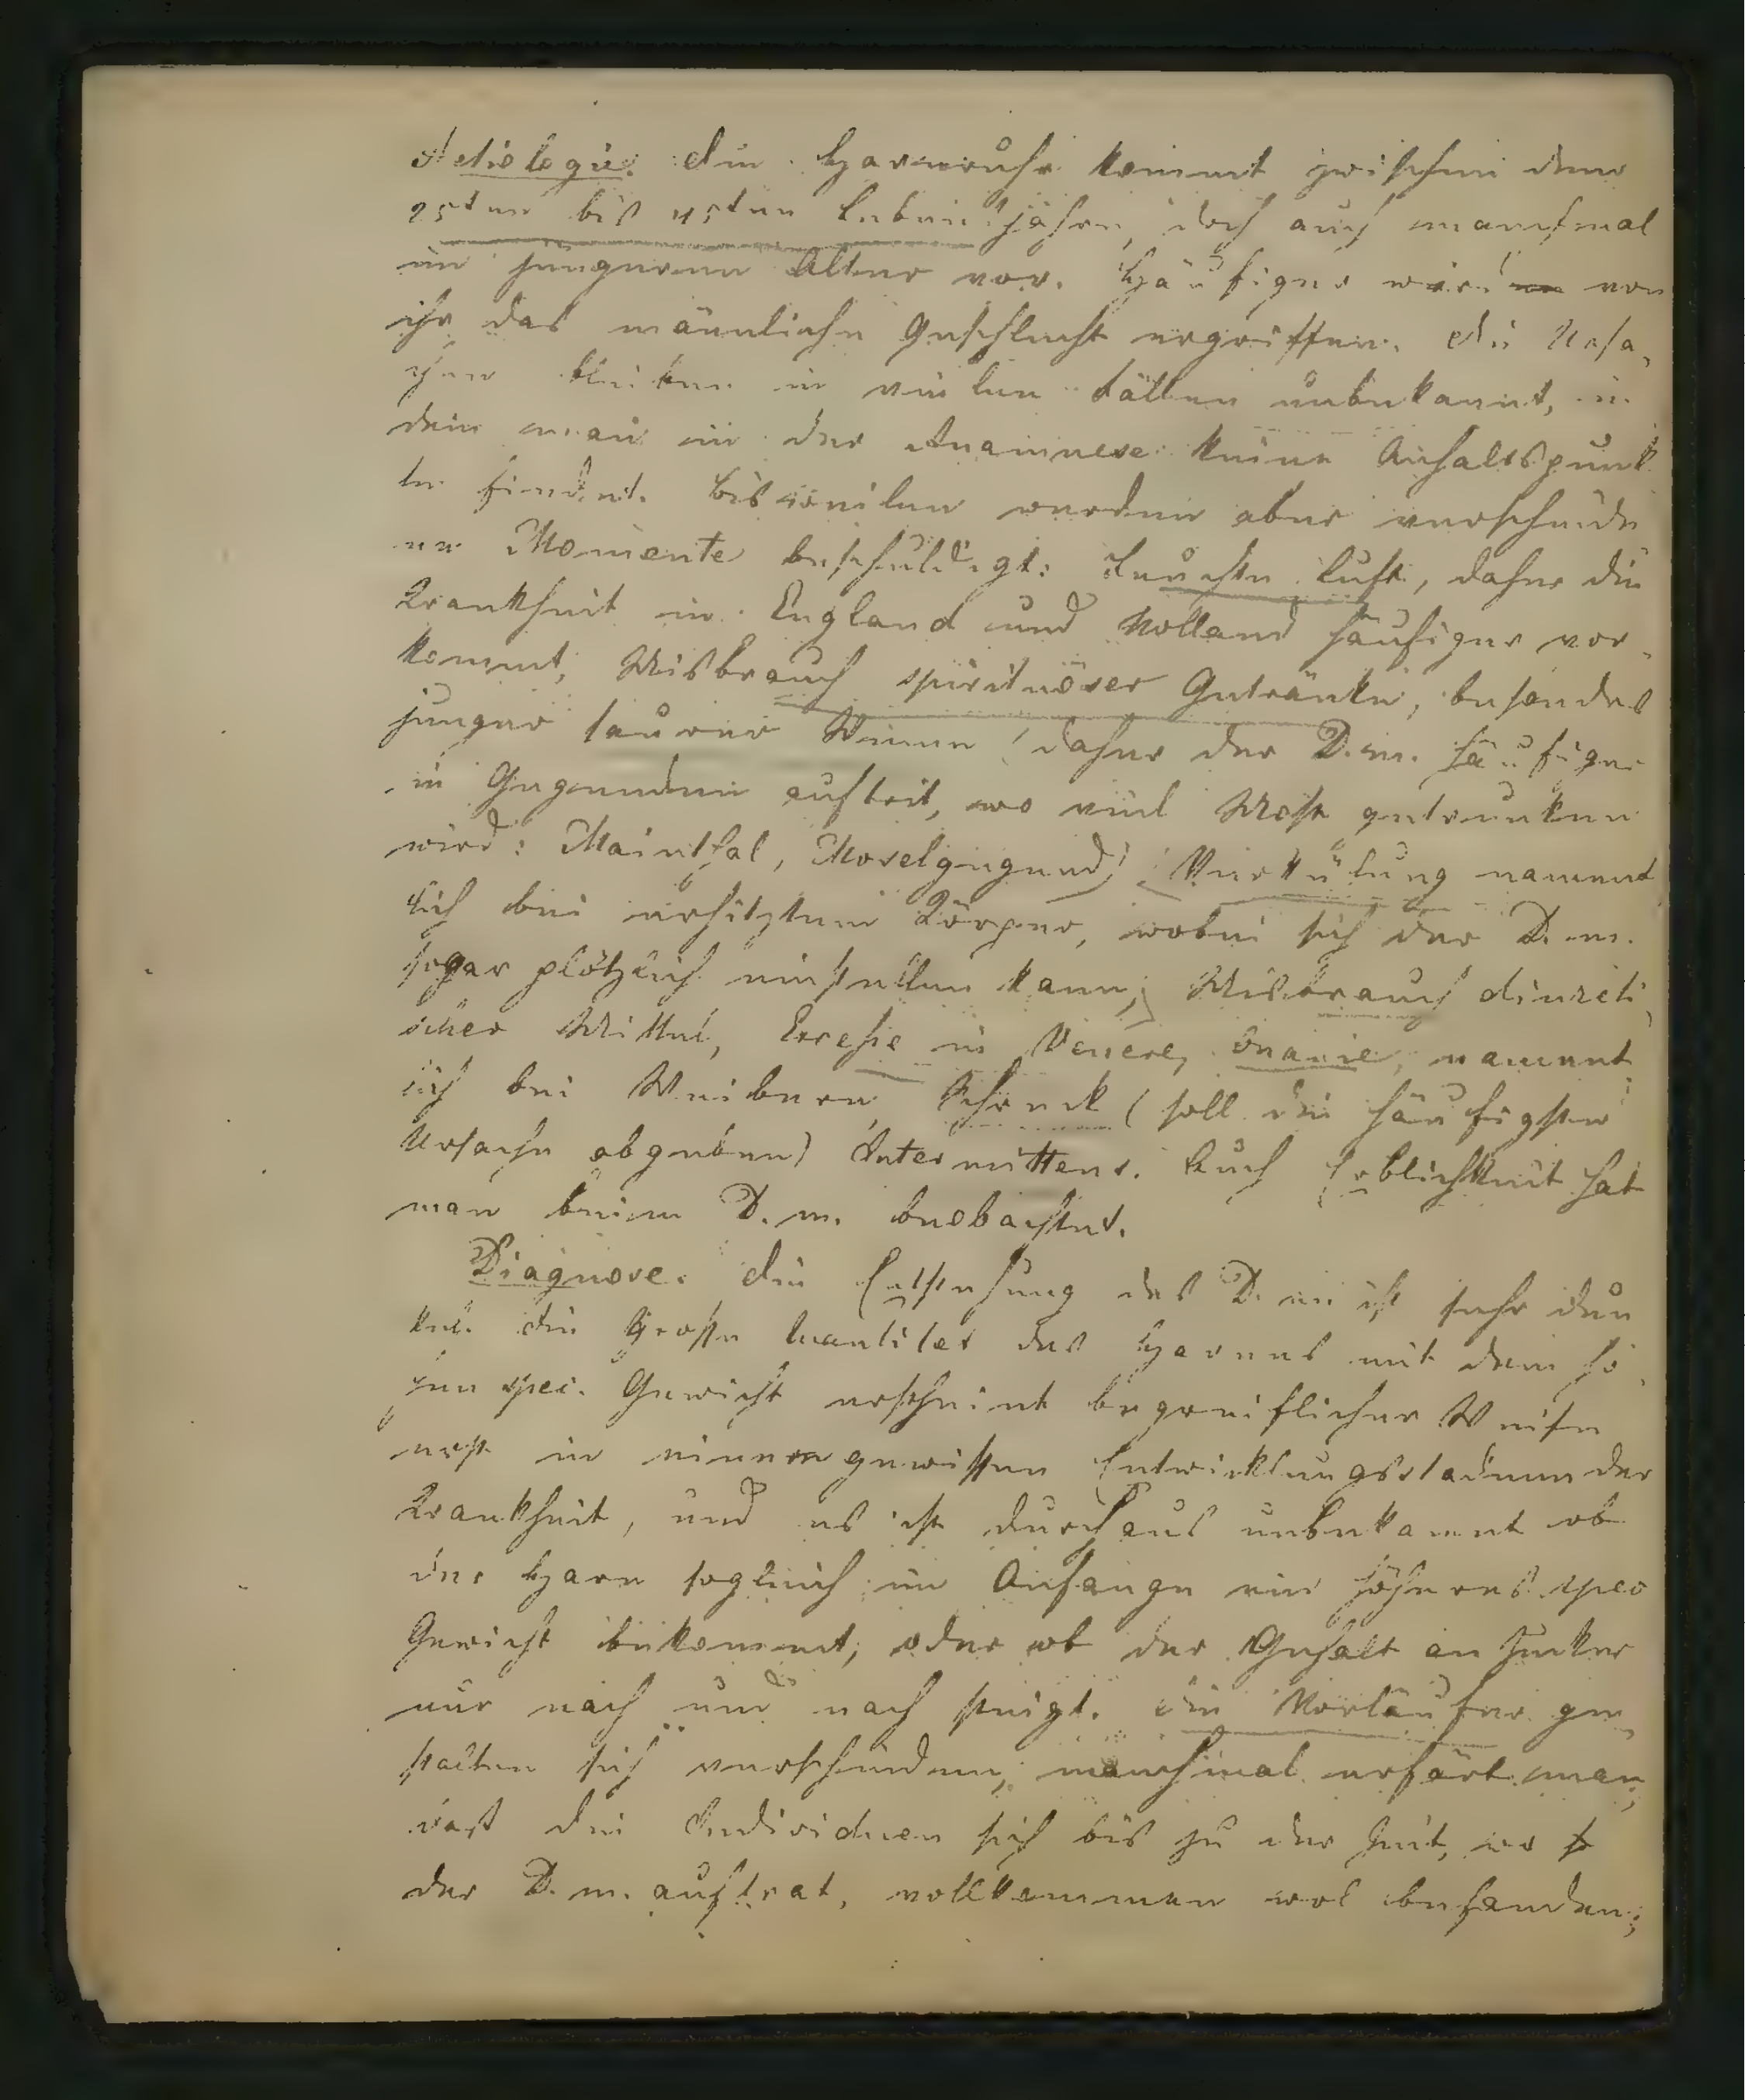 Aetiologie. Die Harnruhr kommt zwischen dem
25ten bis 45ten Lebensjahre, doch auch manchmal
im jungeren Alter vor. Häufiger wird von
ihr das männliche Geschlecht ergriffen. Die Ursa,
chen bleiben in vielen Fällen unbekannt, in
dem man in der Anamnese keine Anhaltspunk
te findet. Bisweilen werden aber verschiede
ne Momente beschuldigt: Feuchte Luft, daher die
Krankheit in England und Holland häufiger vor,
kommt; Misbrauch spirituöser Getränke, besondes
junger saurer Weine (daher der D. m. häufiger
in Gegenden auftrit, wo viel Most getrunken
wird: Mainthal, Moselgegend) Verkülung nament
lich bei erhitztem Körper, wobei sich der D. m.
sogar plötzlich einstellen kann; Misbrauch diureti,
scher Mittel, Excesse in Venere, Onanie, nament
lich bei Weibern Schreck (soll die häufigste
Ursache abgeben) Intermittens. Auch Erblichkeit hat
man beim D. m. beobachtet.
Diagnose. Die Entstehung des D. m ist sehr dun
kel. die Grosse Quantitet des Harnes mit dem ho,
hen spec. Gewicht erscheint begreiflicher Weise
erst in einem gewissen Entwicklungsstadium der
Krankheit, und es ist durchaus unbekannt ob
der Harn sogleich im Anfange ein höheres spec
Gewicht bekommt; oder ob der Gehalt an Zucker
nur nach und nach steigt. Die Vorläufer ge,
stalten sich verschieden, manchmal erfärt man,
dass die Individuen sich bis zu der Zeit, wo
der D. m. auftrat, vollkommen wol befanden;